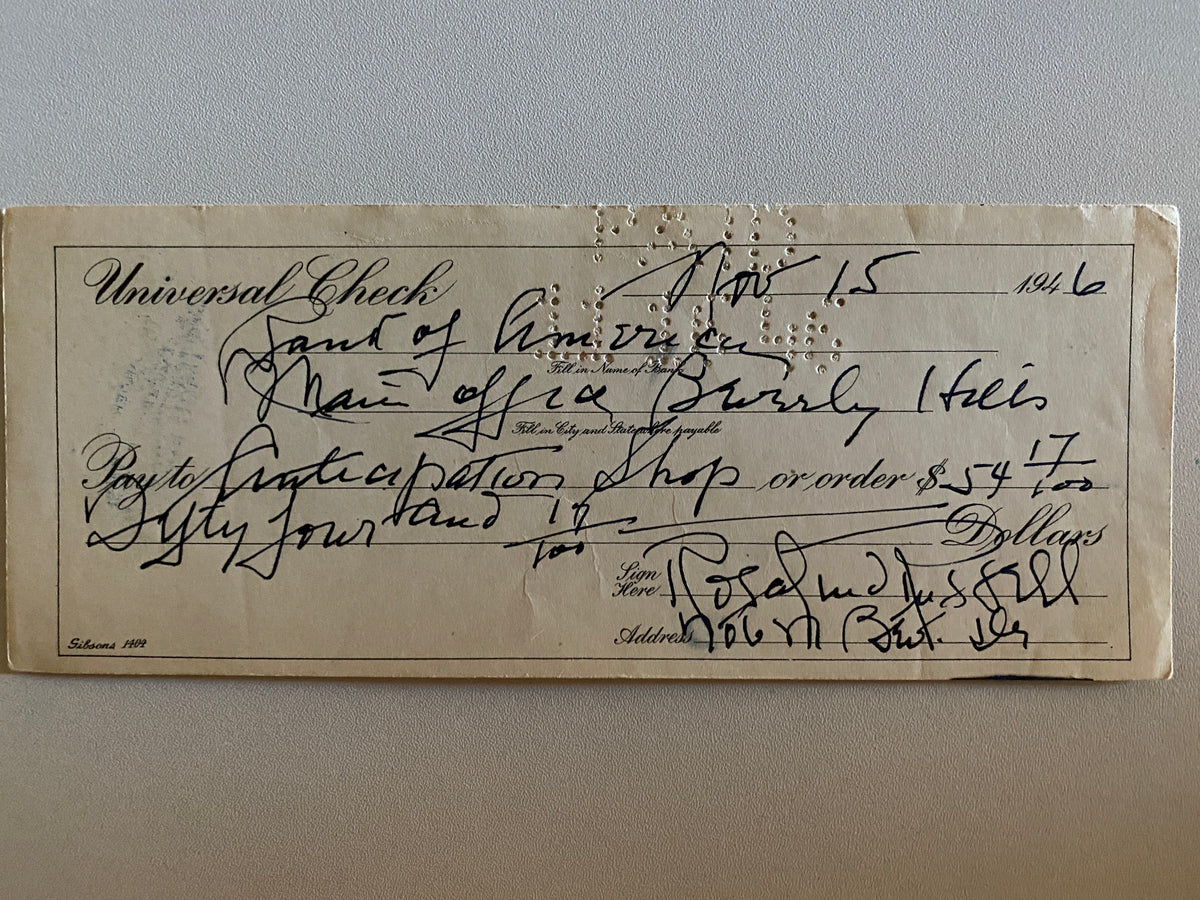 PAID
Universal Check Nov 15 1946
Bank of America
Fill in Name of Bank
Main office Beverly Hills
Fill in City and State where payable
Pay to Anticipation Shop or order $ 54 17/100
Fifty four and 17/100 Dollars
Sign Here Rosalind Russell
Address 706 N Bev. Dr
Gibsons 1404